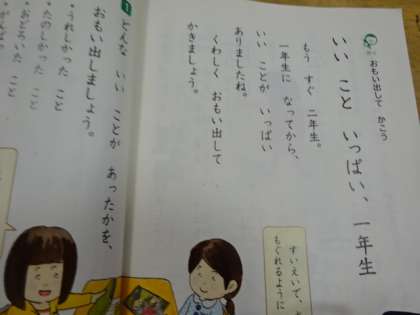 おもい出して かこう
いい こと いっぱい、一年生
もう すぐ 二年生。
一年生に なってから、
いい ことが いっぱい
ありましたね。
くわしく おもい出して
かきましょう。
すいえいで、
もぐれるように
1 どんな いい ことが あったかを、
おもい出しましょう。
・うれしかった こと
・たのしかった こと